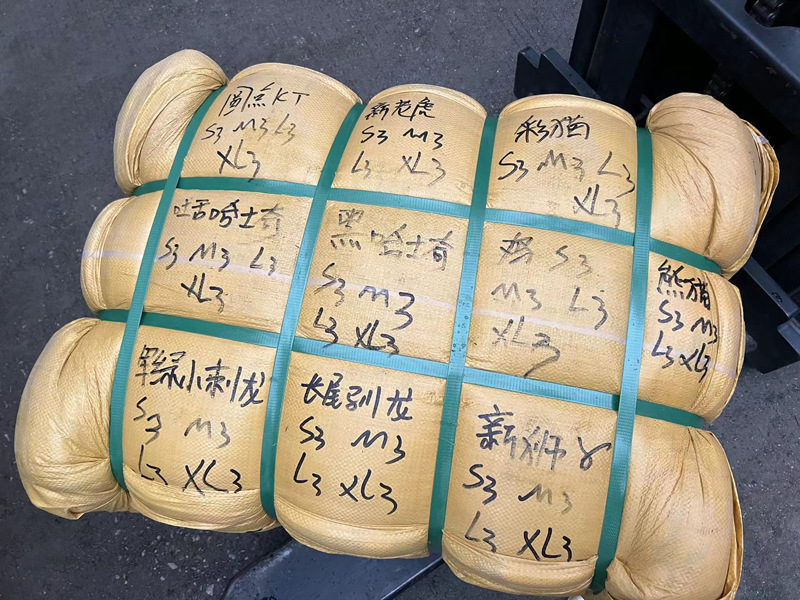 圆点KT
S3 M3 L3
XL3
新老虎
S3 M3
L3 XL3
彩猫
S3 M3 L3
XL3
吐舌哈士奇
S3 M3 L3
XL3
黑哈士奇
S3 M3
L3 XL3
S3
M3 L3
XL3
熊猫
S3 M3
L3 XL3
草绿小刺龙
S3 M3
L3 XL3
长尾驯龙
S3 M3
L3 XL3
新狮
S3 M3
L3 XL3